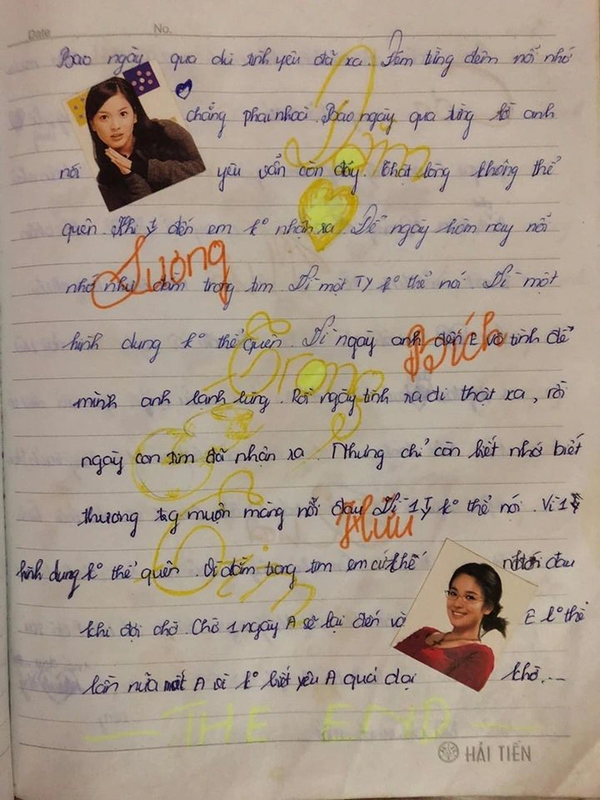 Date No.
Bao ngày qua dù tình yêu đã xa. Đêm từng đêm nỗi nhớ
chẳng phai nhoài. Bao ngày qua từng lời anh
nói yêu vẫn còn đấy thật lòng không thể
quên. Khi đến em k° nhận ra. Để ngày hôm nay nỗi
nhớ như đâm trong tim Vì một TY k° thể nói. Vì một
hình dung k° thể quên Vì ngày anh đến E vô tình để
mình anh lạnh lùng. Rồi ngày tình ra đi thật xa, rồi
ngày con tim đã nhận ra. Nhưng chỉ còn biết nhớ biết
thương muộn màng nỗi đau Vì 1 Ty k° thể nói. Vì 1
hình dung k° thể quên. Vì trong tim em cứ thế đau
khi đợi chờ. Chờ 1 ngày A sẽ lại đến và E k° thể
lần nữa mất A vì k° biết yêu A quá dại khờ...
Tim
Trong
Bích
Hữu
THE END
HẢI TIẾN